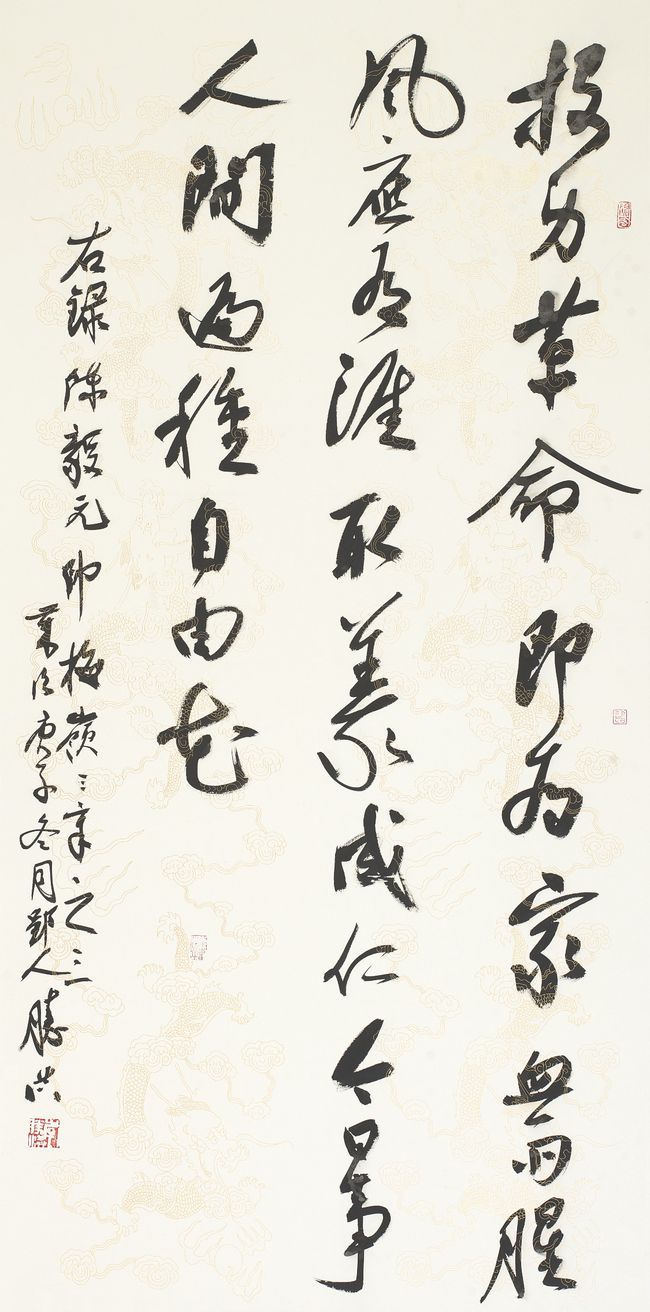 投身革命即為家血雨腥
風應有涯取義成仁今日事
人間遍種自由花
右錄陳毅元帥梅嶺三章之三
歲次庚子冬月鄞人勝